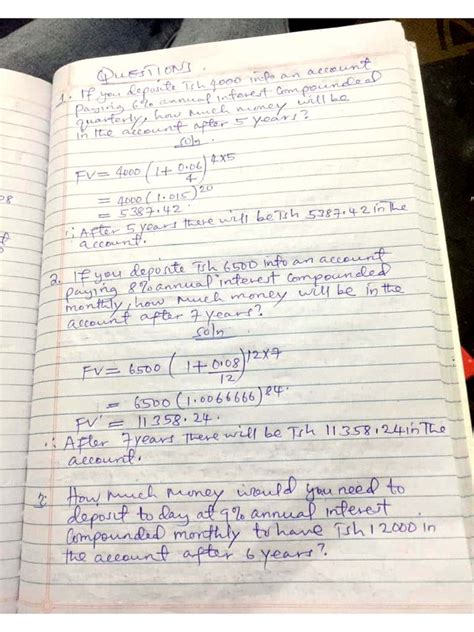 QUESTIONS.
1. If you deposite Tsh 4000 into an account
paying 6% annual interest compounded
quarterly, how much money will be
in the account after 5 years?
soln
FV = 4000 (1 + 0.06/4)^4x5
= 4000 (1.015)^20
= 5387.42.
∴ After 5 years there will be Tsh 5387.42 in the
account.
2. If you deposite Tsh 6500 into an account
paying 8% annual interest compounded
monthly, how much money will be in the
account after 7 years?
soln
FV = 6500 (1 + 0.08/12)^12x7
= 6500 (1.0066666)^84.
FV = 11358.24.
∴ After 7 years there will be Tsh 11358.24 in the
account.
3. How much money would you need to
deposit to day at 9% annual interest
compounded monthly to have Tsh 12000 in
the account after 6 years?